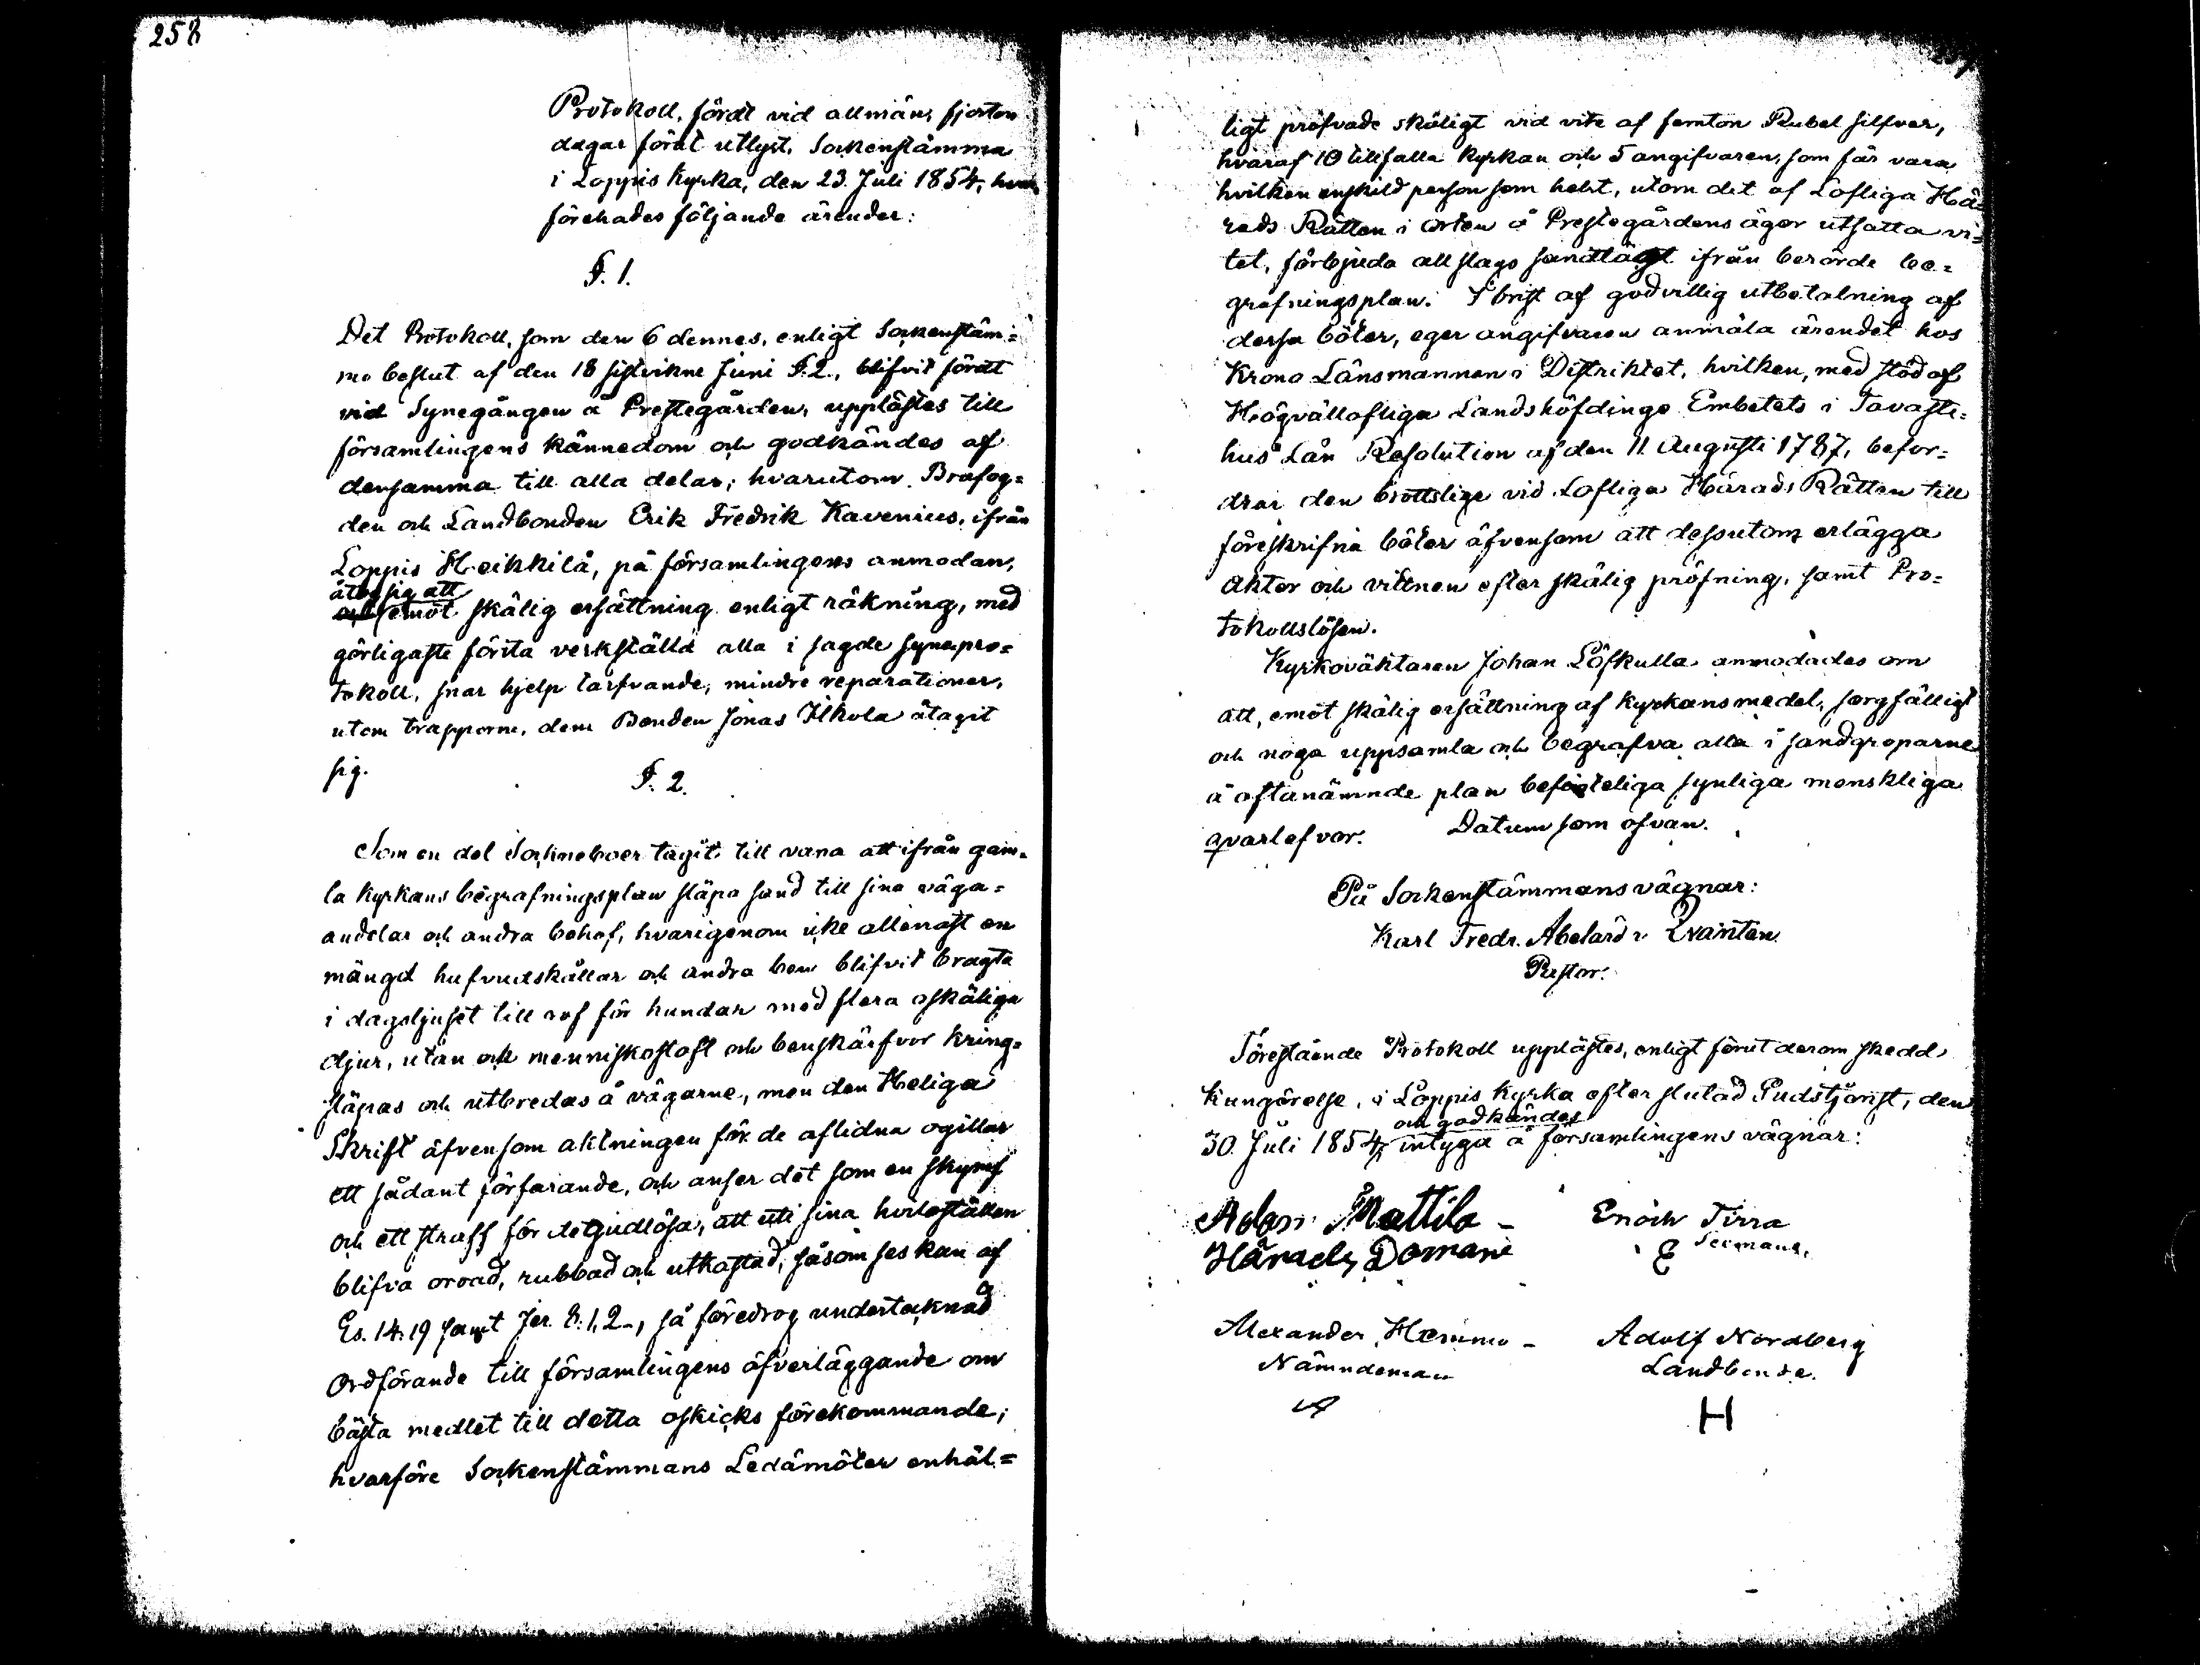 258
Protokoll, fördt vid allmän, fjorton
dagar förut utlyst, Sockenstämma
i Loppis Kyrka, den 23. Juli 1854, hvar
förehades följande ärender:
§. 1.
Det Protokoll, som den 6 dennes, enligt Sockenstäm=
mo beslut af den 18 sistvikne Juni §. 2., blifvit fördt
vid Synegången å Prestegården, upplästes till
församlingens kännedom och godkändes af
densamma till alla delar; hvarutom Brofog=
den och Landbonden Erik Fredrik Kavenius, ifrån
Loppis Heikkilä, på församlingens anmodan,
åtog sig att
emot skälig ersättning enligt räkning, med
görligaste första verkställa alla i sagde synepro=
tokoll, snar hjelp tarfvande, mindre reparationer,
utom trapporne, dem Bonden Jonas Ilkola åtagit
sig.
§. 2.
Som en del Sockneboer tagit till vana att ifrån gam=
la Kyrkans begrafningsplan släpa sand till sina väga=
andelar och andra behof, hvarigenom icke allenast en
mängd hufvudskållar och andra ben blifvit bragta
i dagsljuset till rof för hundar med flera oskäliga
djur, utan ock menniskostoft och benskärfvor kring=
släpas och utbredas å vägarne, men den Heliga
Skrift äfvensom aktningen för de aflidna ogillar
ett sådant förfarande, och anser det som en skymf
och ett straff för de Gudlösa, att uti sina hviloställen
blifva oroad, rubbad och utkastad, såsom ses kan af
Es. 14:19 samt Jer. 8:1,2., så föredrog undertecknad
Ordförande till församlingens öfverläggande om
bästa medlet till detta oskicks förekommande;
hvarföre Sockenstämmans Ledamöter enhäl=
ligt pröfvade skäligt vid vite af femton Rubel silfver,
hvaraf 10 tillfalla Kyrkan och 5 angifvaren, som får vara
hvilken enskild person som helst, utom det af Lofliga Hä=
rads Rätten i orten å Prestegårdens ägor utsatta vi=
tet, förbjuda all slags sandtägt ifrån berörde be=
grafningsplan. I brist af godvillig utbetalning af
dessa böter, eger angifvaren anmäla ärendet hos
Krono Länsmannen i Distriktet, hvilken, med stöd af
Högvällofliga Landshöfdinge Embetets i Tavaste=
hus Län Resolution af den 11 Augusti 1787, befor=
drar den brottslige vid Lofliga Härads Rätten till
föreskrifna böter äfvensom att dessutom erlägga
akter och vittnen efter skälig pröfning, samt Pro=
tokollslösen.
Kyrkoväktaren Johan Löfkulla anmodades om
att, emot skälig ersättning af Kyrkans medel, sorgfälligt
och noga uppsamla och begrafva alla i sandgroparne
å oftanämnde plan befinteliga synliga menskliga
qvarlefvor. Datum som ofvan.
På Sockenstämmans vägnar:
Karl Fredr. Abelard v. Qvanten
Pastor.
Förestående Protokoll upplästes, enligt förut derom skedd
Kungörelse, i Loppis Kyrka efter slutad Gudstjenst, den
och godkändes
30. Juli 1854, intyga å församlingens vägnar:
Adam Mattila
Härads Domare
Enoch Tirra
Sexman,
E
Alexander Hemmo
Nämndeman
Adolf Nordberg
Landbonde.
H